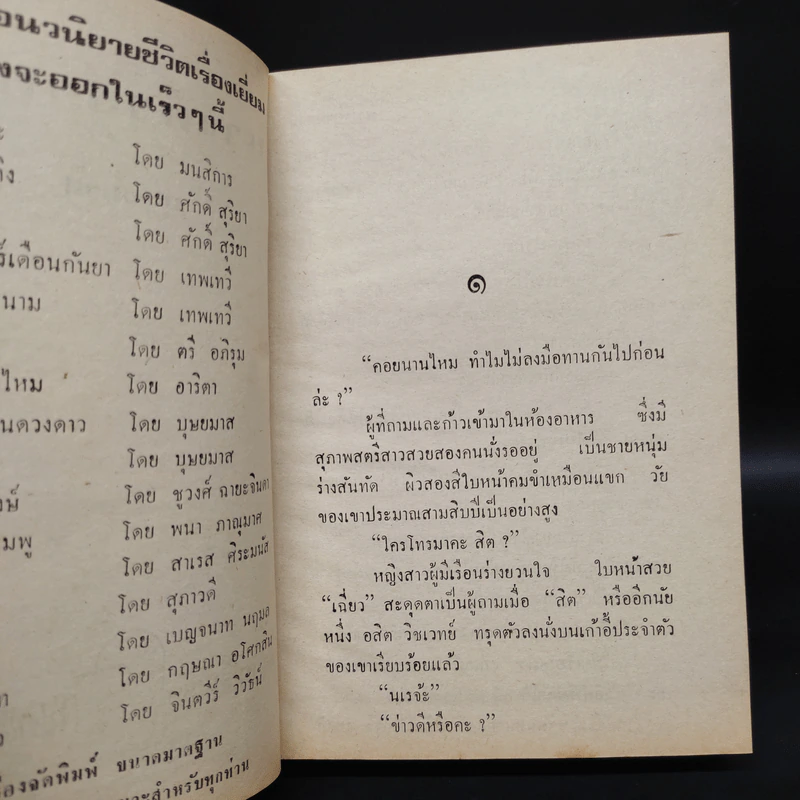 อนวนิยายชีวิตเรื่องเยี่ยม
งจะออกในเร็วๆนี้
โดย มนสิการ
โดย ศักดิ์ สุริยา
โดย ศักดิ์ สุริยา
ร์เดือนกันยา โดย เทพเทวี
นาม โดย เทพเทวี
โดย ตรี อภิรุม
ไหม โดย อาริตา
นดวงดาว โดย บุษยมาส
โดย บุษยมาส
งษ์ โดย ชูวงศ์ ฉายะจินดา
มพู โดย พนา ภาณุมาศ
โดย สาเรส ศิระมนัส
โดย สุภาวดี
โดย เบญจนาท นฤมล
โดย กฤษณา อโศกสิน
โดย จินตวีร์ วิวัธน์
องจัดพิมพ์ ขนาดมาตฐาน
ะสำหรับทุกท่าน
๑
“คอยนานไหม ทำไมไม่ลงมือทานกันไปก่อน
ล่ะ ?”
ผู้ที่ถามและก้าวเข้ามาในห้องอาหาร ซึ่งมี
สุภาพสตรีสาวสวยสองคนนั่งรออยู่ เป็นชายหนุ่ม
ร่างสันทัด ผิวสองสีใบหน้าคมขำเหมือนแขก วัย
ของเขาประมาณสามสิบปีเป็นอย่างสูง
“ใครโทรมาคะ สิต ?”
หญิงสาวผู้มีเรือนร่างยวนใจ ใบหน้าสวย
“เฉี่ยว” สะดุดตาเป็นผู้ถามเมื่อ “สิต” หรืออีกนัย
หนึ่ง อสิต วิชเวทย์ ทรุดตัวลงนั่งบนเก้าอี้ประจำตัว
ของเขาเรียบร้อยแล้ว
“นเรจ้ะ”
“ข่าวดีหรือคะ ?”